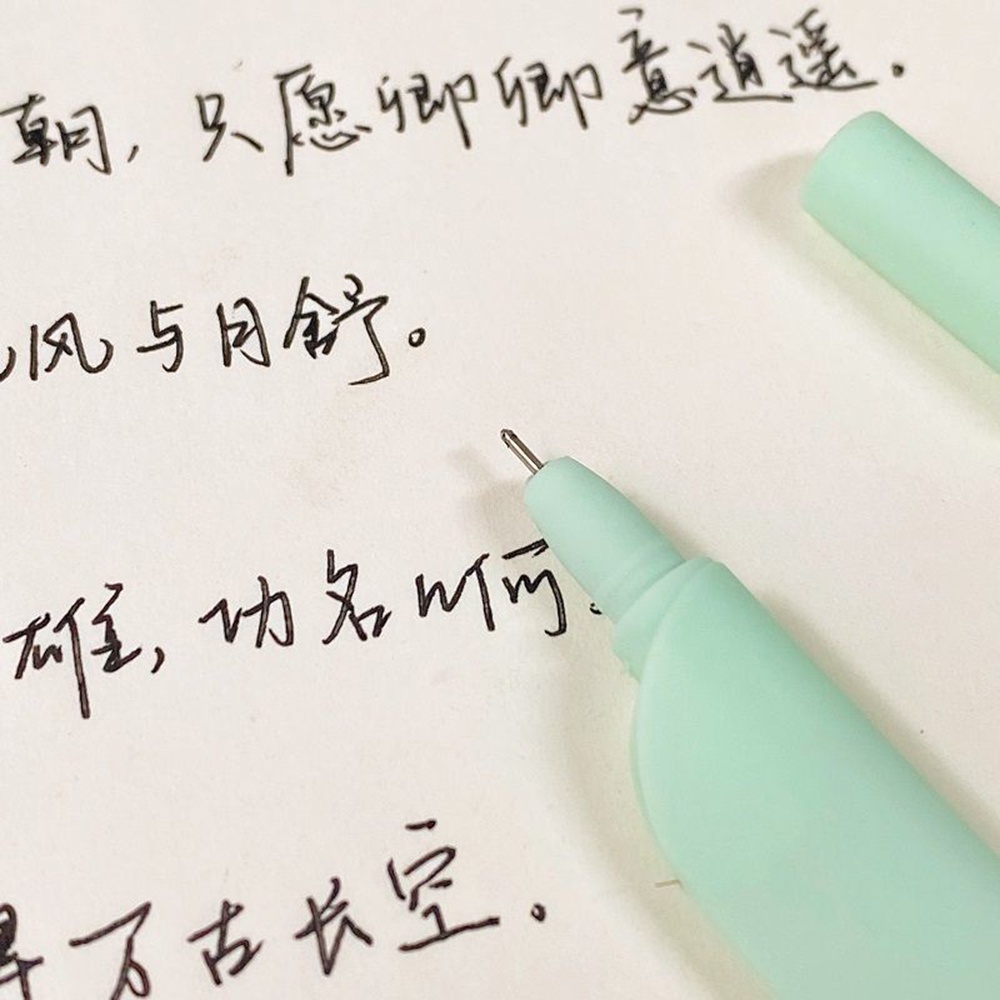 朝,只愿卿卿意逍遥。
风与月舒。
雄,功名几何。
万古长空。